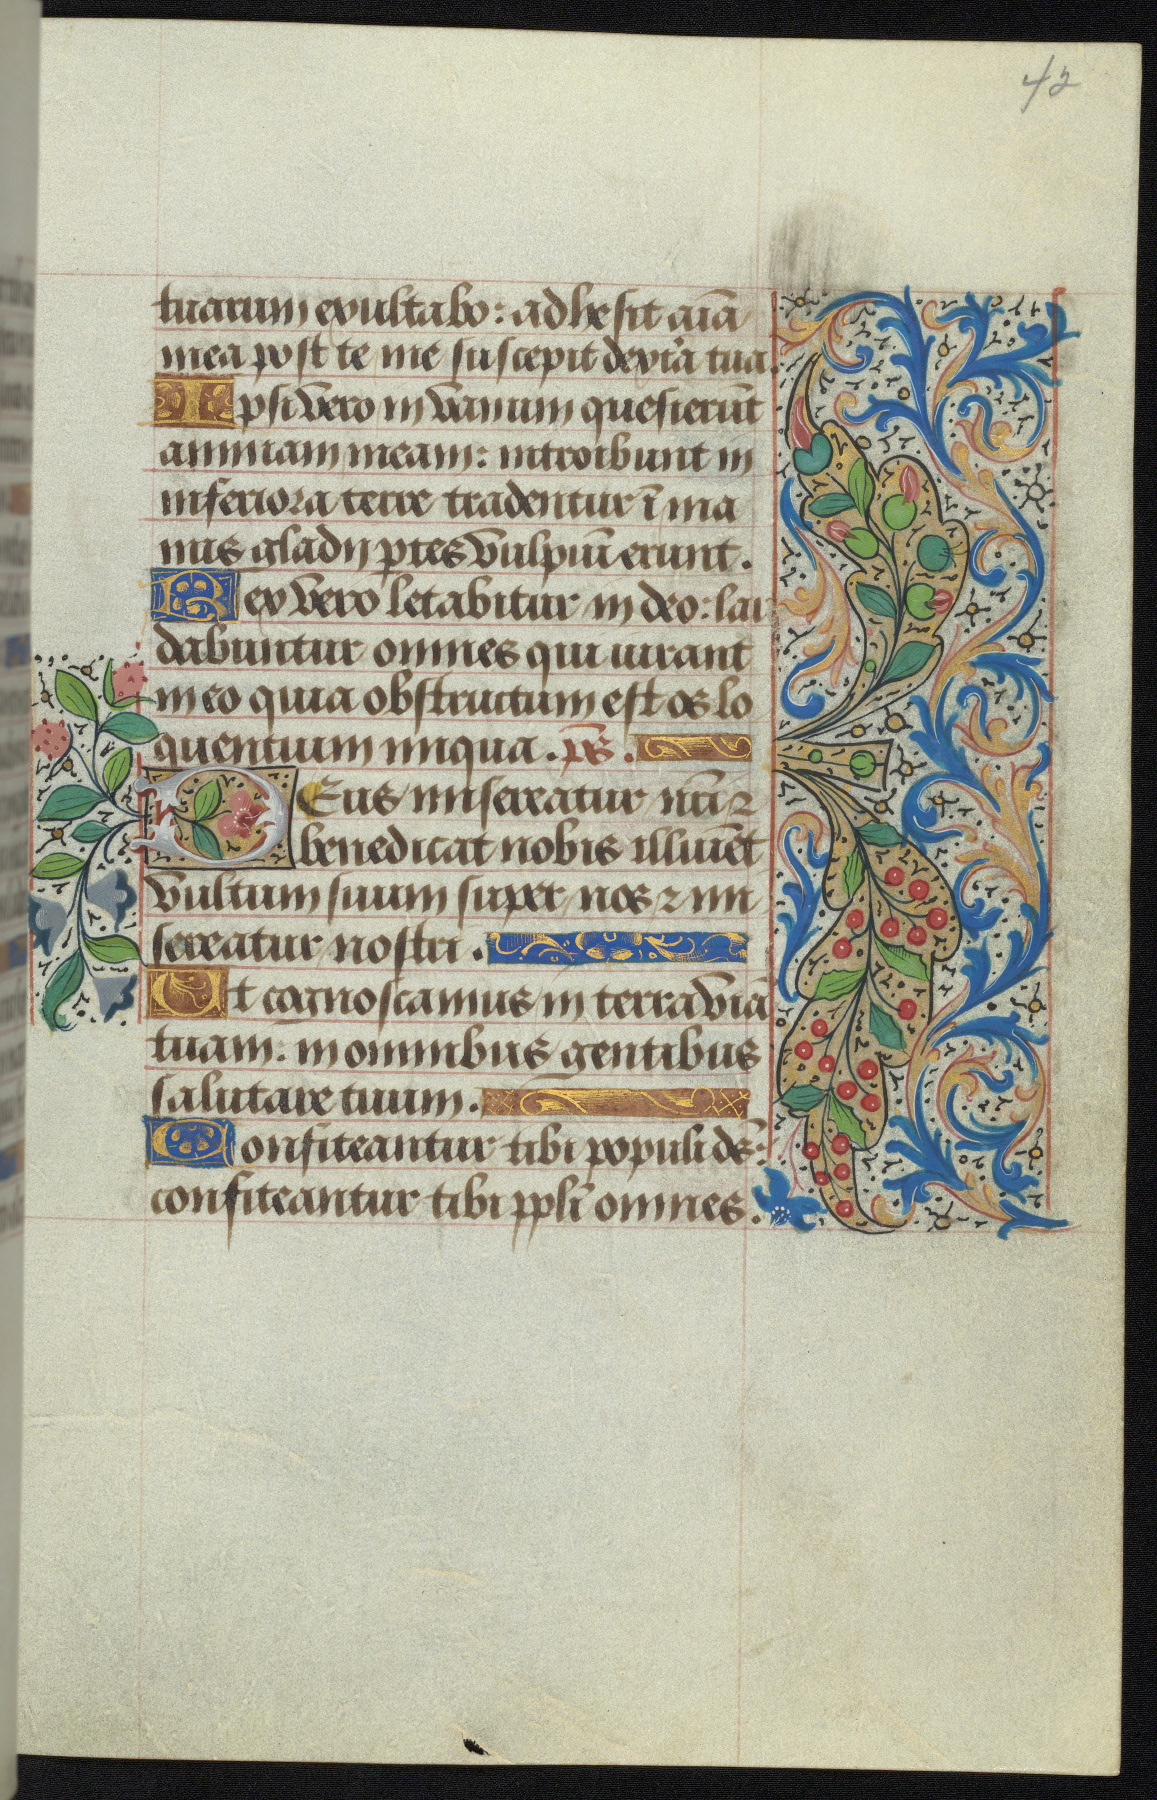 42
tuarum exultabo: adhesit aīa
mea post te me suscepit dextra tua.
Ipsi vero in vanum quesierūt
animam meam: introibunt in
inferiora terre tradentur ī ma
nus gladij ptes vulpiū erunt.
Rex vero letabitur in deo: lau
dabuntur omnes qui iurant
in eo quia obstructum est os lo
quentium iniqua. ps.
Deus misereatur nr̄i ⁊
benedicat nobis illuīet
vultum suum super nos ⁊ mi
sereatur nostri.
Ut cognoscamus in terra viā
tuam: in omnibus gentibus
salutare tuum.
Confiteantur tibi populi ds̄:
confiteantur tibi ppl̄i omnes.